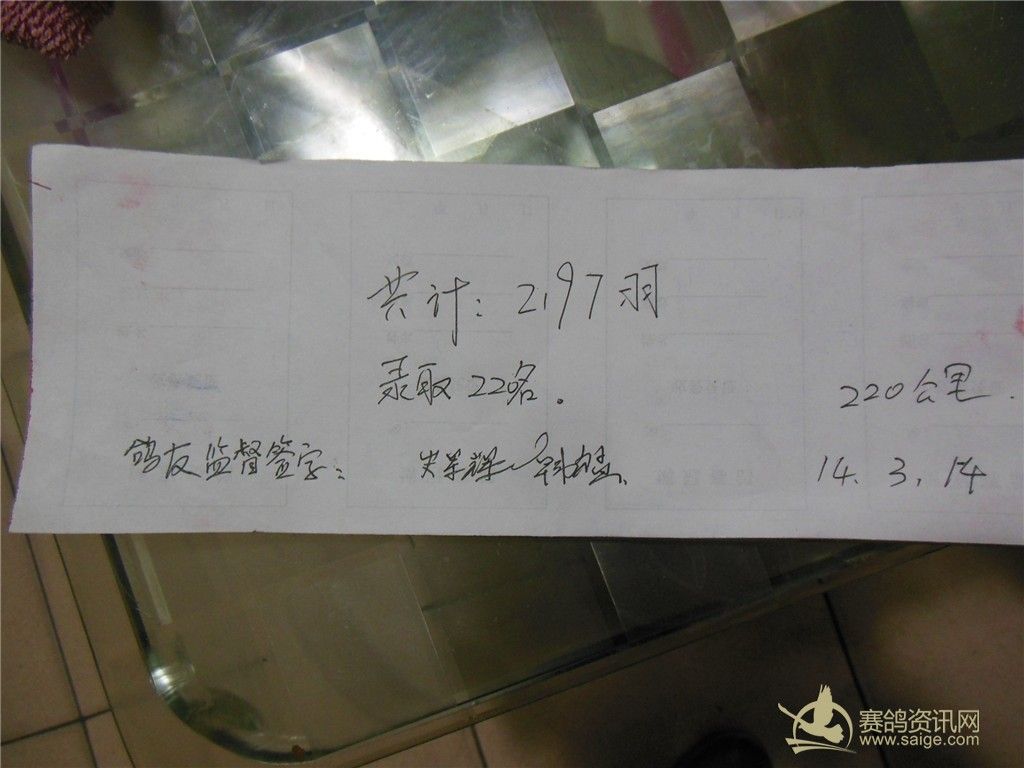 共计: 2197羽
录取 220名.
220公里.
鸽友监督签字:
14. 3. 14
赛鸽资讯网
www.saige.com